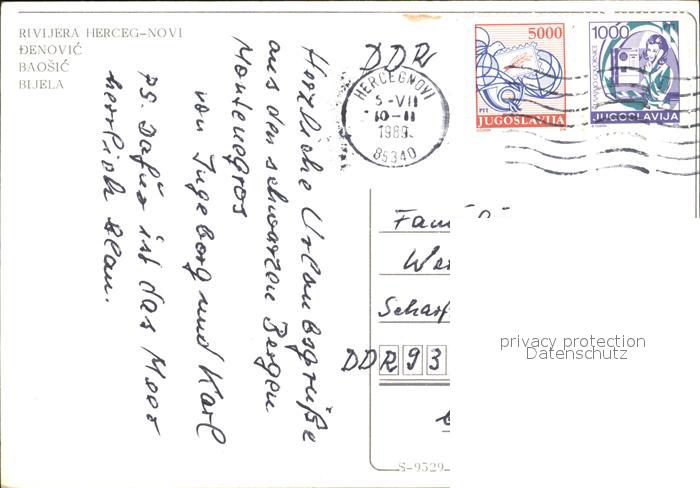 RIVIJERA HERCEG-NOVI
ĐENOVIĆ
BAOŠIĆ
BIJELA
Herzliche Urlaubsgrüße
aus den schwarzen Bergen
Montenegros
von Ingeborg und Karl
PS. Dafür ist das Meer
herrlich blau.
DDR
HERCEGNOVI
5-VII
10-11
1989
85340
5000
PTT
JUGOSLAVIJA
1000
JUGOSLAVIJA
Fam
We
Scharf
DDR 93
S-9529
privacy protection
Datenschutz